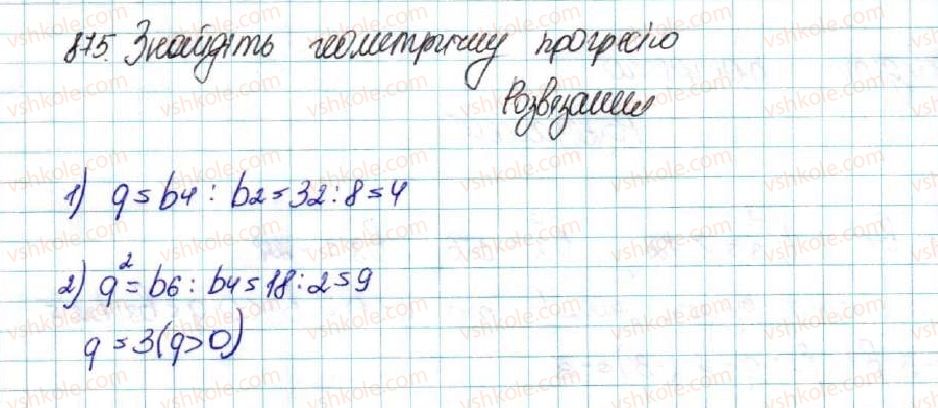 875. Знайдіть геометричну прогресію
Розв'язання
1) q = b4 : b2 = 32 : 8 = 4
2) q² = b6 : b4 = 18 : 2 = 9
q = 3 (q > 0)